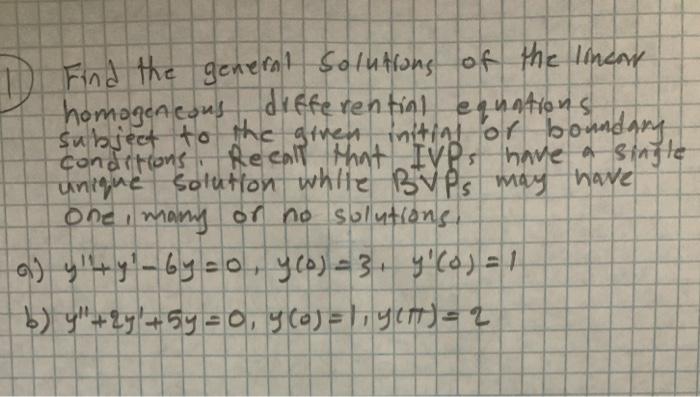 1) Find the general solutions of the linear
homogeneous differential equations
subject to the given initial or boundary
conditions. Recall that IVPs have a single
unique solution while BVPs may have
one, many or no solutions.
a) y''+y'-6y=0, y(0)=3, y'(0)=1
b) y''+2y'+5y=0, y(0)=1, y(π)=2